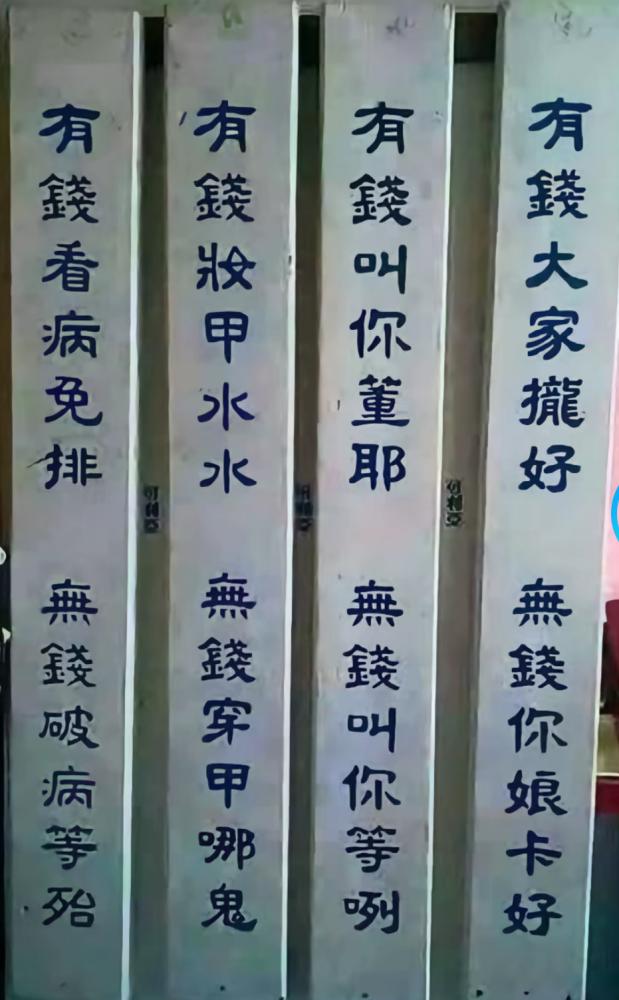 有錢大家攏好 無錢你娘卡好
有錢叫你董耶 無錢叫你等咧
有錢妝甲水水 無錢穿甲哪鬼
有錢看病免排 無錢破病等殆